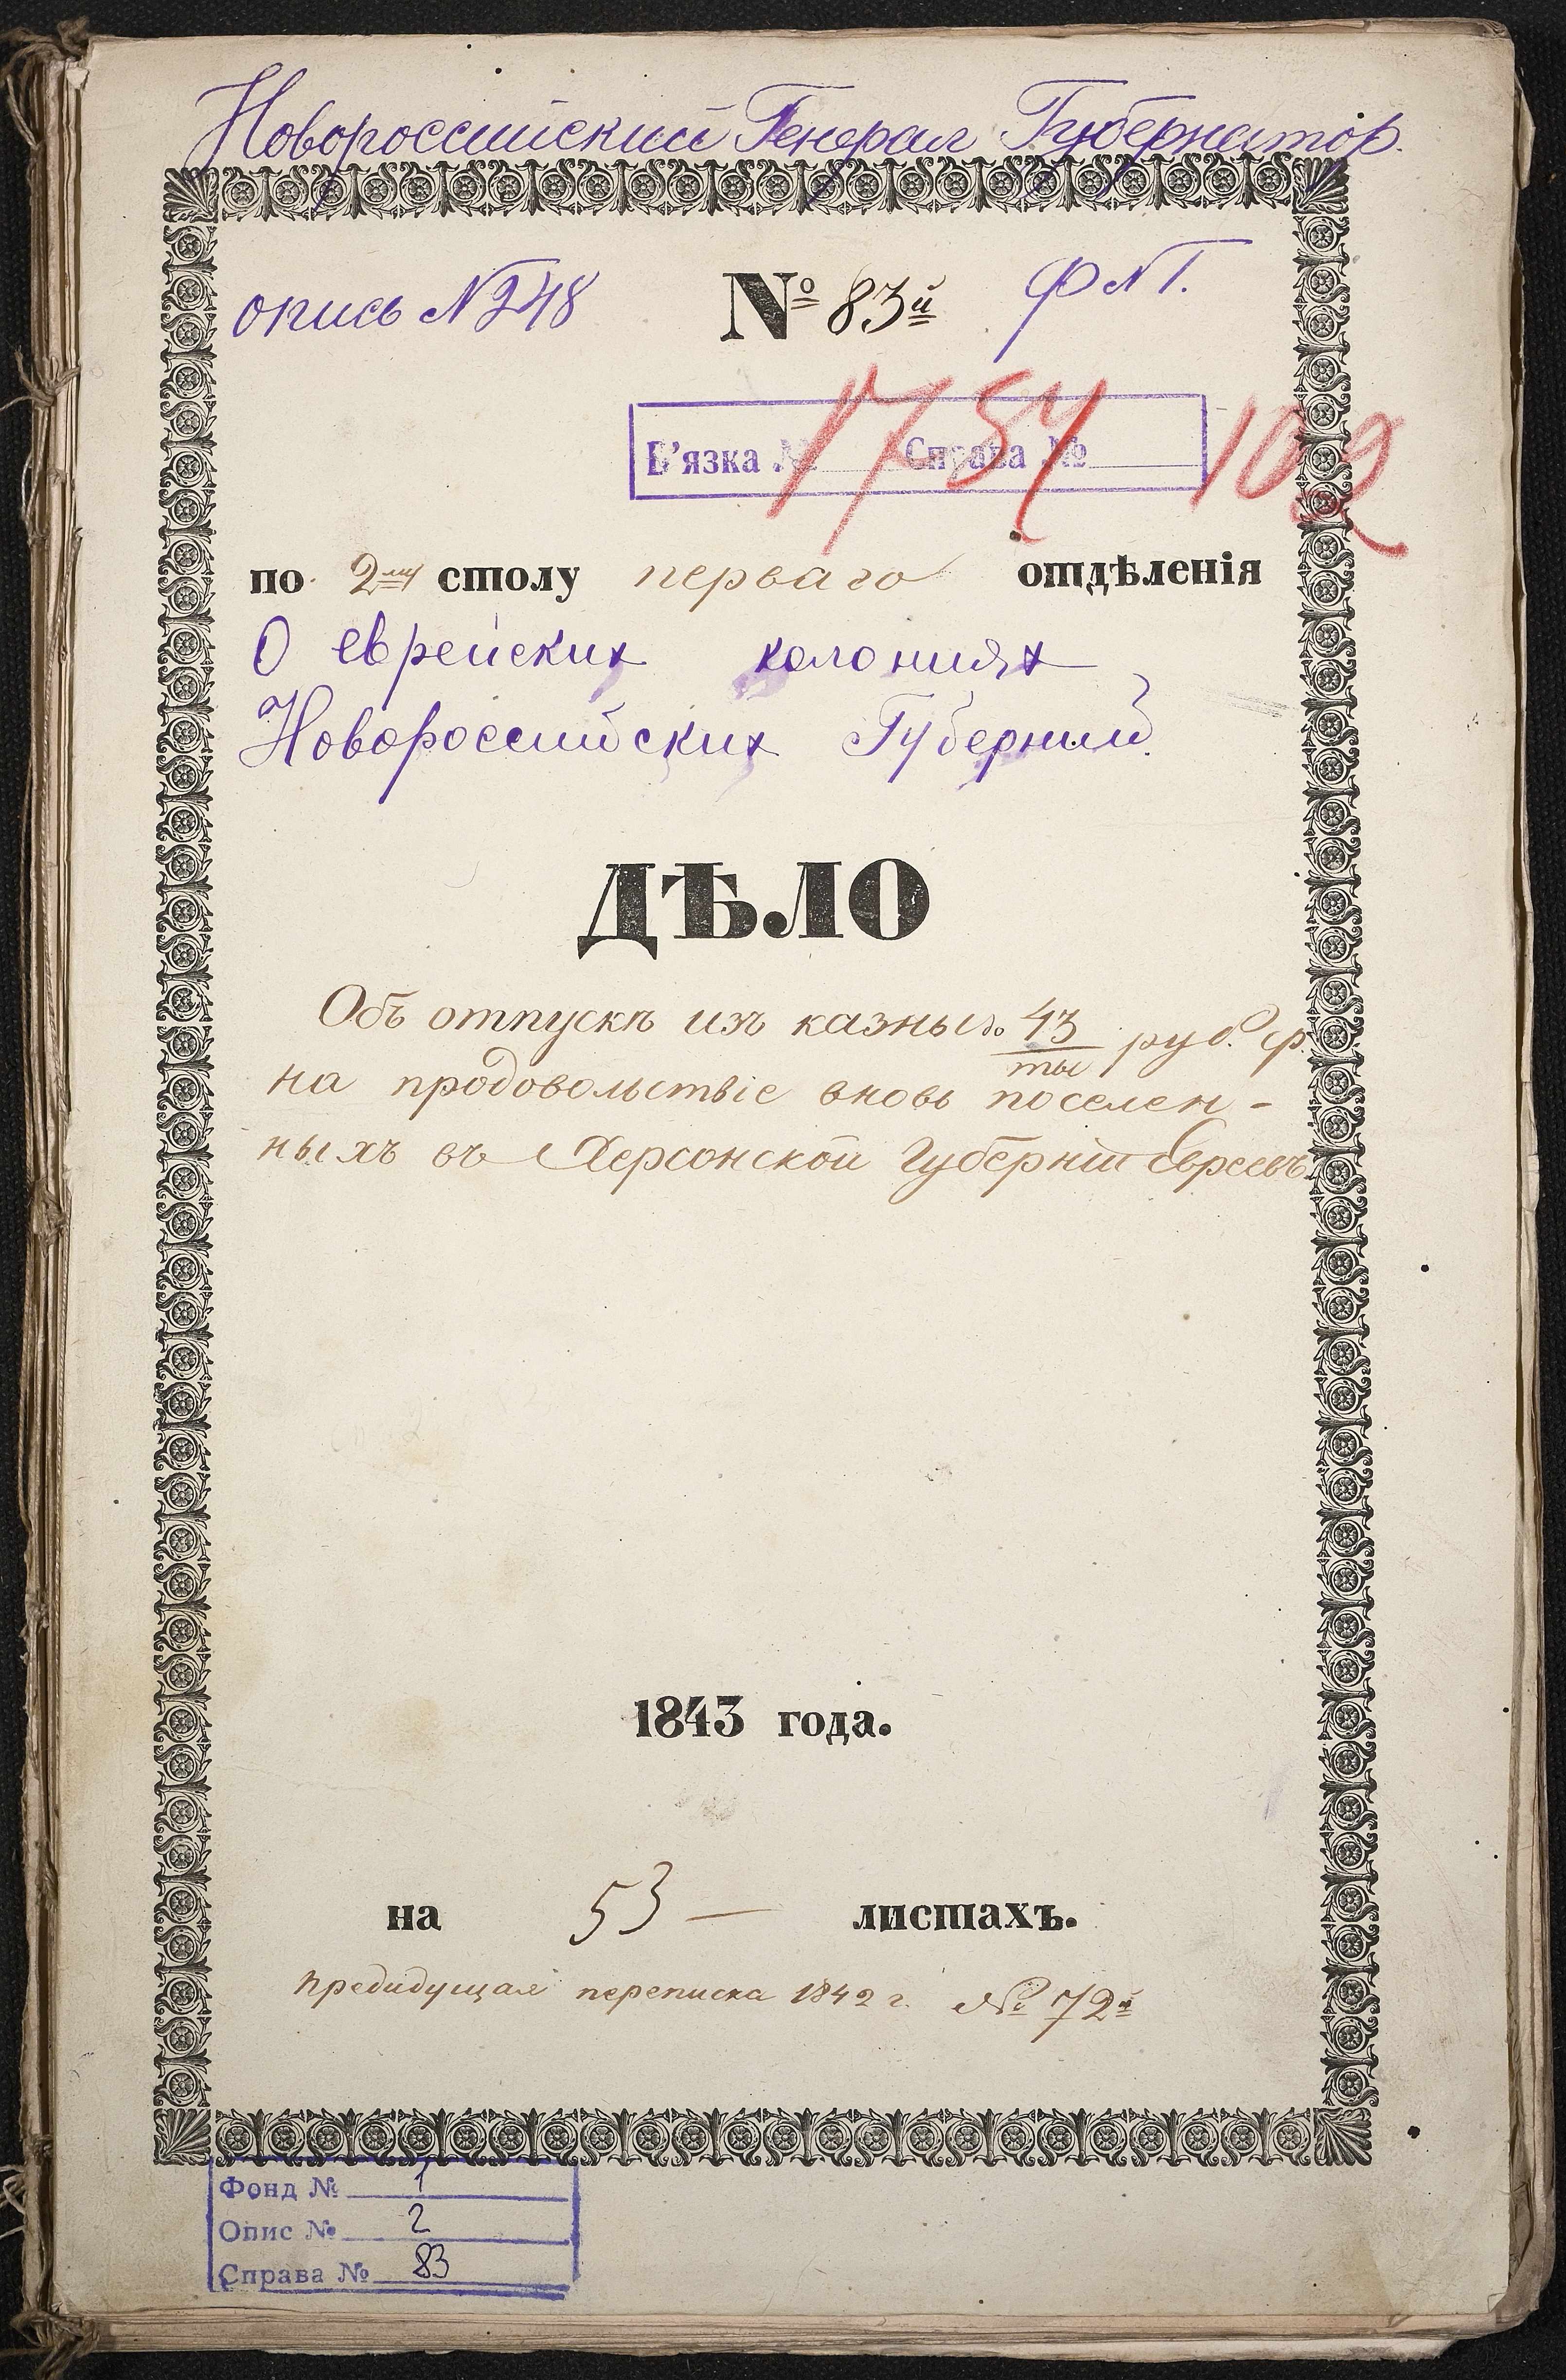 Новороссийский Генерал Губернатор.
опись № 248 № 83й ф № 1.
В'язка № Справа №
1754 102
по 2му столу перваго отдѣленія
О еврейских колониях
Новороссийских Губерний.
ДѢЛО
Объ отпускѣ изъ казны до 43 руб.
ты
на продовольствіе вновь поселен-
ныхъ въ Херсонской Губерніи Евреевъ.
1843 года.
на 53 — листахъ.
предидущая переписка 1842 г. № 72й
Фонд № 1
Опис № 2
Справа № 83